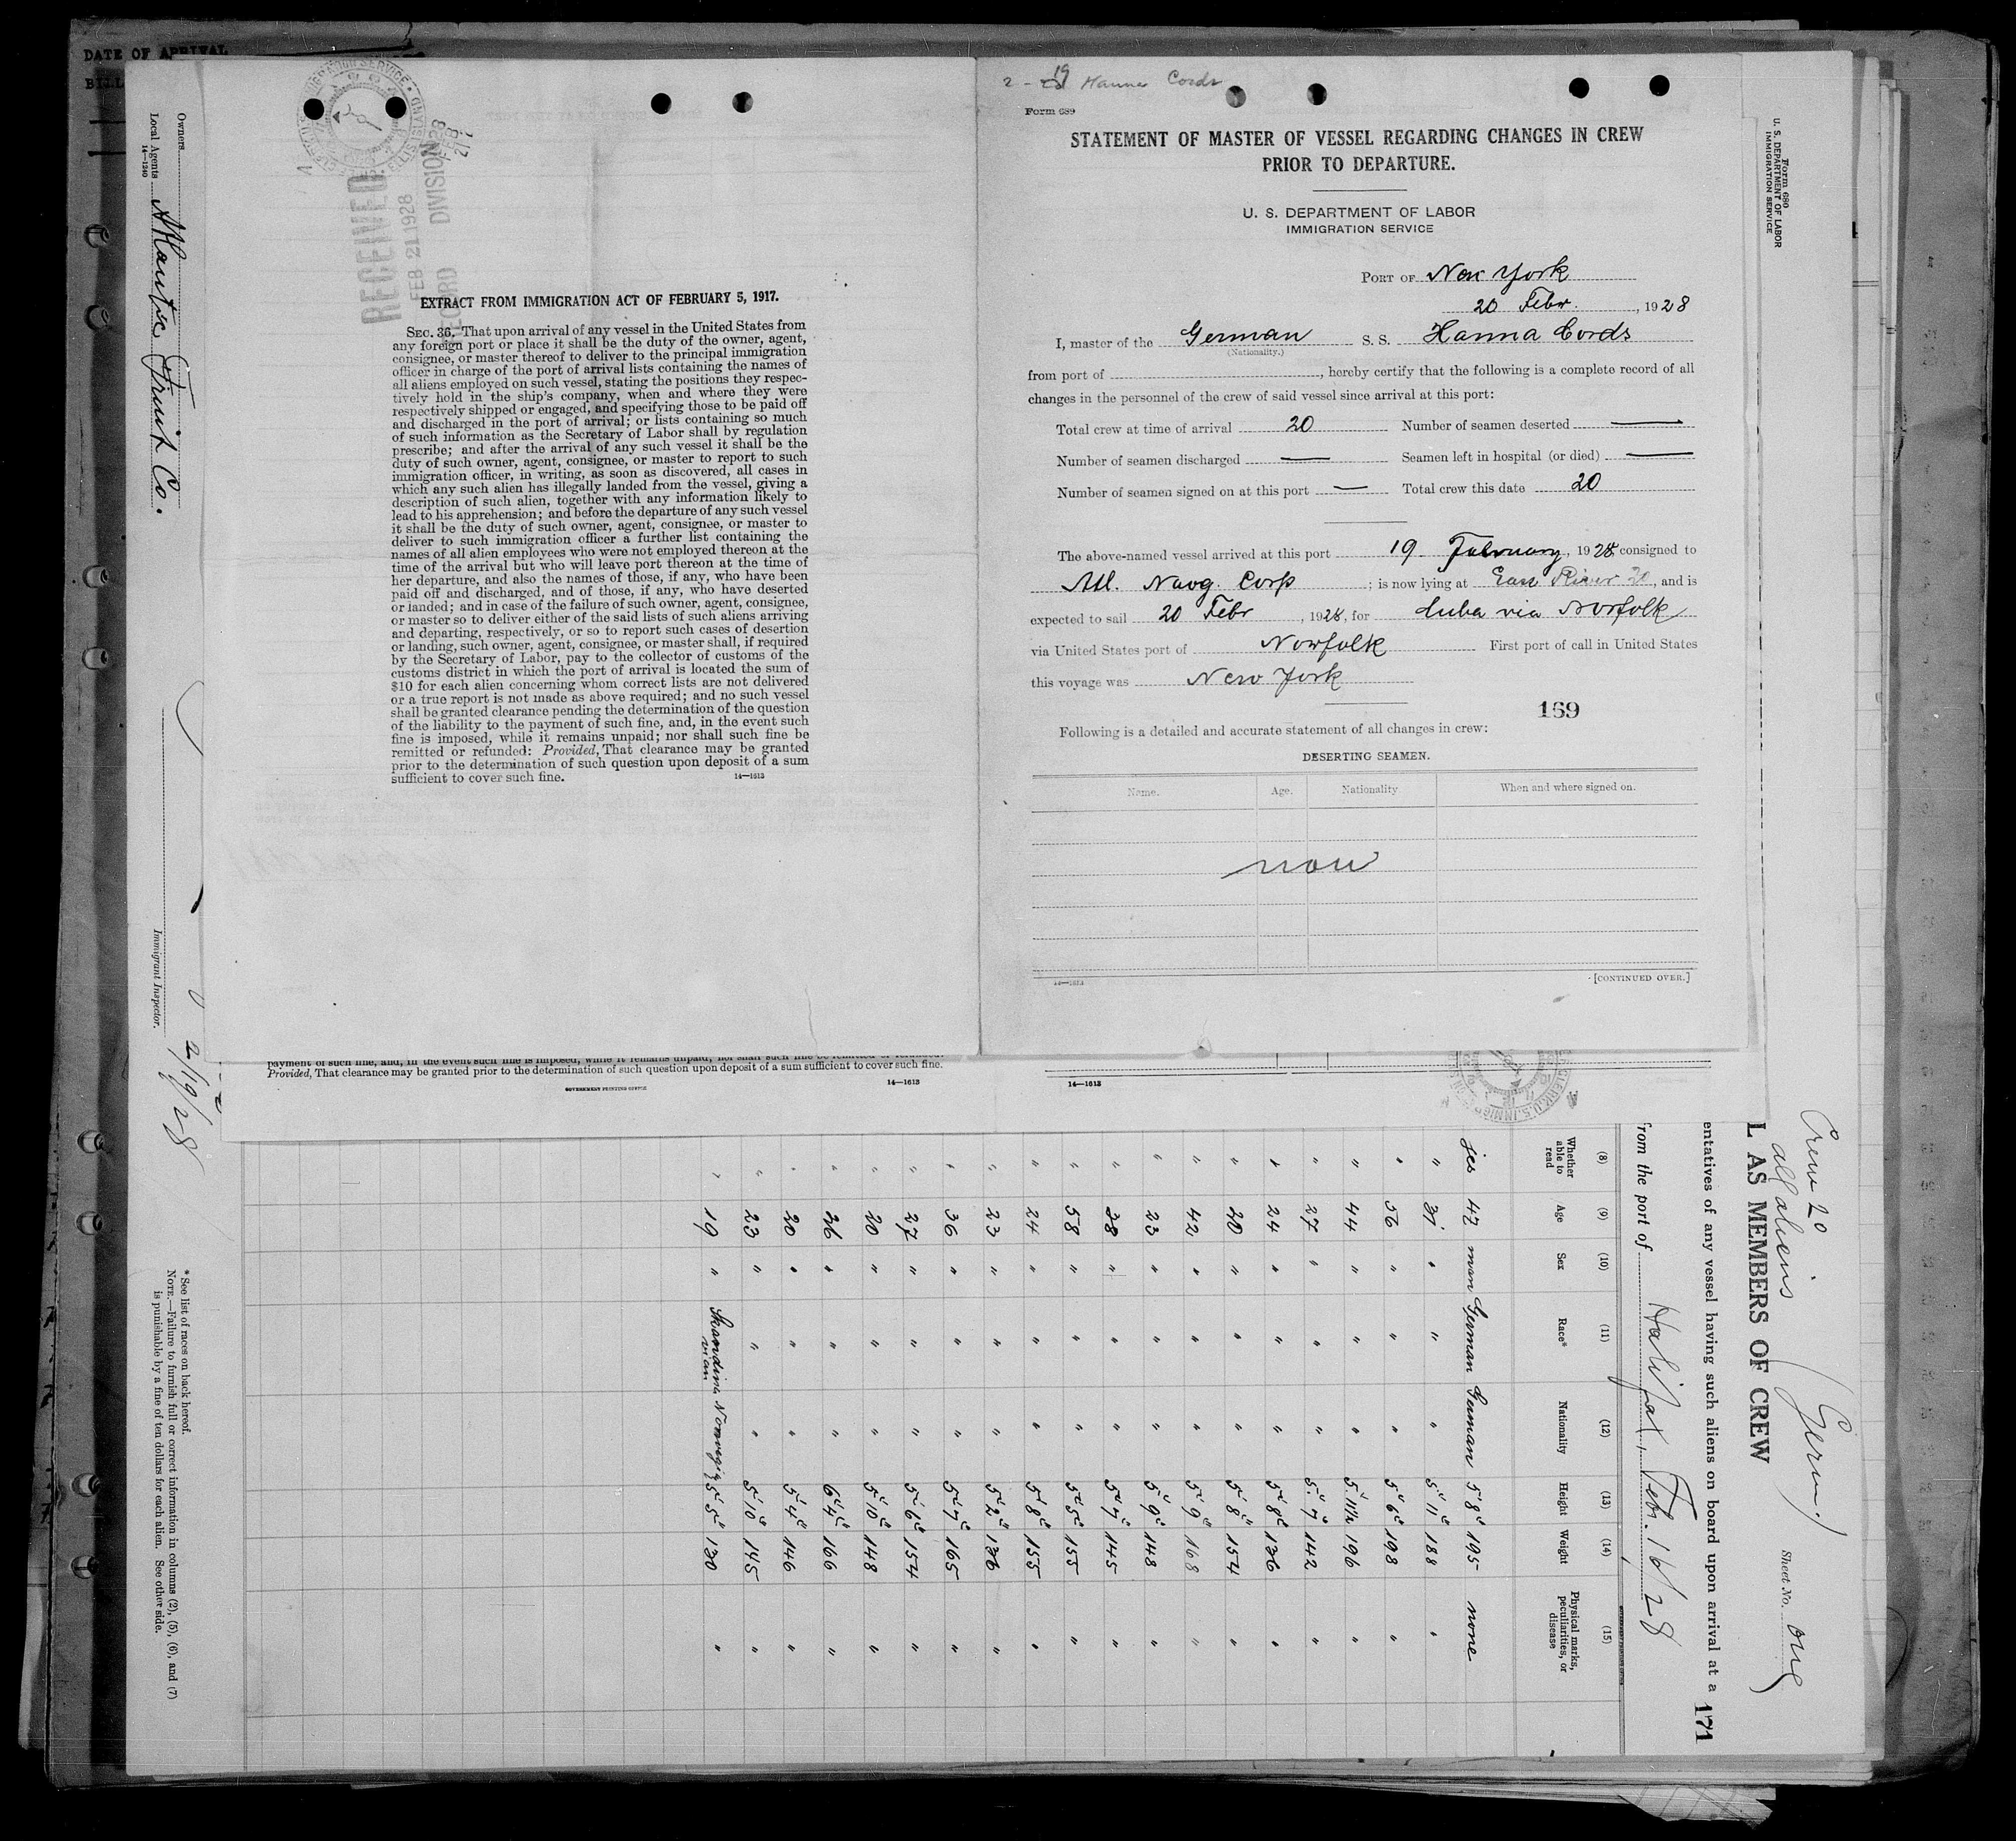 DATE OF ARRIVAL
Owners
Local Agents Atlantic Fruit Co.
14—1240
Immigrant Inspector.
2/19/28
RECEIVED
FEB 21 1928
RECORD DIVISION
EXTRACT FROM IMMIGRATION ACT OF FEBRUARY 5, 1917.
SEC. 36. That upon arrival of any vessel in the United States from
any foreign port or place it shall be the duty of the owner, agent,
consignee, or master thereof to deliver to the principal immigration
officer in charge of the port of arrival lists containing the names of
all aliens employed on such vessel, stating the positions they respec-
tively hold in the ship's company, when and where they were
respectively shipped or engaged, and specifying those to be paid off
and discharged in the port of arrival; or lists containing so much
of such information as the Secretary of Labor shall by regulation
prescribe; and after the arrival of any such vessel it shall be the
duty of such owner, agent, consignee, or master to report to such
immigration officer, in writing, as soon as discovered, all cases in
which any such alien has illegally landed from the vessel, giving a
description of such alien, together with any information likely to
lead to his apprehension; and before the departure of any such vessel
it shall be the duty of such owner, agent, consignee, or master to
deliver to such immigration officer a further list containing the
names of all alien employees who were not employed thereon at the
time of the arrival but who will leave port thereon at the time of
her departure, and also the names of those, if any, who have been
paid off and discharged, and of those, if any, who have deserted
or landed; and in case of the failure of such owner, agent, consignee,
or master so to deliver either of the said lists of such aliens arriving
and departing, respectively, or so to report such cases of desertion
or landing, such owner, agent, consignee, or master shall, if required
by the Secretary of Labor, pay to the collector of customs of the
customs district in which the port of arrival is located the sum of
$10 for each alien concerning whom correct lists are not delivered
or a true report is not made as above required; and no such vessel
shall be granted clearance pending the determination of the question
of the liability to the payment of such fine, and, in the event such
fine is imposed, while it remains unpaid; nor shall such fine be
remitted or refunded: Provided, That clearance may be granted
prior to the determination of such question upon deposit of a sum
sufficient to cover such fine.
14—1613
2 - 19 Hanna Cords
Form 689
STATEMENT OF MASTER OF VESSEL REGARDING CHANGES IN CREW
PRIOR TO DEPARTURE.
U. S. DEPARTMENT OF LABOR
IMMIGRATION SERVICE
PORT OF New York
20 Febr. , 1928
I, master of the German S. S. Hanna Cords
(Nationality.)
from port of , hereby certify that the following is a complete record of all
changes in the personnel of the crew of said vessel since arrival at this port:
Total crew at time of arrival 20 Number of seamen deserted —
Number of seamen discharged — Seamen left in hospital (or died) —
Number of seamen signed on at this port — Total crew this date 20
The above-named vessel arrived at this port 19 February, 1928 consigned to
Atl. Navg. Corp ; is now lying at East River 20, and is
expected to sail 20 Febr , 1928, for Cuba via Norfolk
via United States port of Norfolk First port of call in United States
this voyage was New York
169
Following is a detailed and accurate statement of all changes in crew:
DESERTING SEAMEN.
Name. Age. Nationality When and where signed on.
[CONTINUED OVER.]
14—1613
payment of such fine, and, in the event such fine is imposed, while it remains unpaid; nor shall such fine be remitted or refunded:
Provided, That clearance may be granted prior to the determination of such question upon deposit of a sum sufficient to cover such fine.
GOVERNMENT PRINTING OFFICE
14—1613
14—1613
Form 680
U. S. DEPARTMENT OF LABOR
IMMIGRATION SERVICE
Crew 20
all aliens (Germ.)
Sheet No. one
L AS MEMBERS OF CREW
entatives of any vessel having such aliens on board upon arrival at a
171
from the port of Halifax, Feb. 16/28
(8) (9) (10) (11) (12) (13) (14) (15)
Whether able to read Age Sex Race* Nationality Height Weight Physical marks, peculiarities, or disease
jes 47 man German German 5'8" 195 none
" 31 " " " 5'11" 188 "
" 56 " " " 5'6" 198 "
" 44 " " " 5'11½ 196 "
" 27 " " " 5'7 142 "
" 24 " " " 5'8" 136 "
" 20 " " " 5'8" 154 "
" 42 " " " 5'9" 168 "
" 23 " " " 5'9" 148 "
" 38 " " " 5'7" 145 "
" 58 " " " 5'5" 155 "
" 24 " " " 5'8" 155 "
" 23 " " " 5'2" 136 "
" 36 " " " 5'7" 165 "
" 27 " " " 5'6" 154 "
" 20 " " " 5'10" 148 "
" 26 " " " 6'4" 166 "
" 20 " " " 5'4" 146 "
" 23 " " " 5'10" 145 "
" 19 " Skandinavian 5'5" 130 "
* See list of races on back hereof.
NOTE.—Failure to furnish full or correct information in columns (2), (5), (6), and (7)
is punishable by a fine of ten dollars for each alien. See other side.